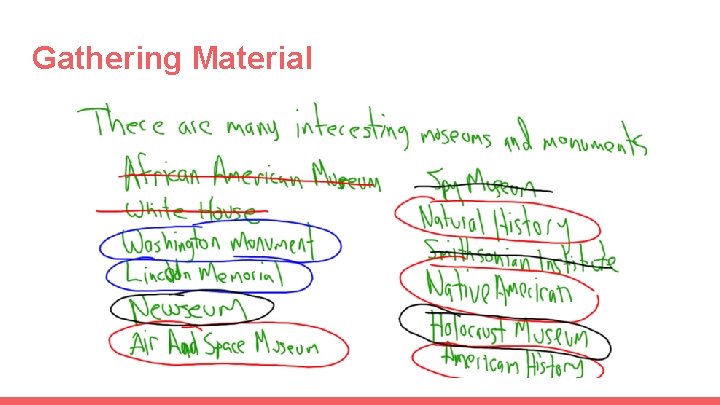 Gathering Material
There are many interesting museums and monuments
African American Museum
White House
Washington Monument
Lincoln Memorial
Newseum
Air And Space Museum
Spy Museum
Natural History
Smithsonian Institute
Native American
Holocaust Museum
American History